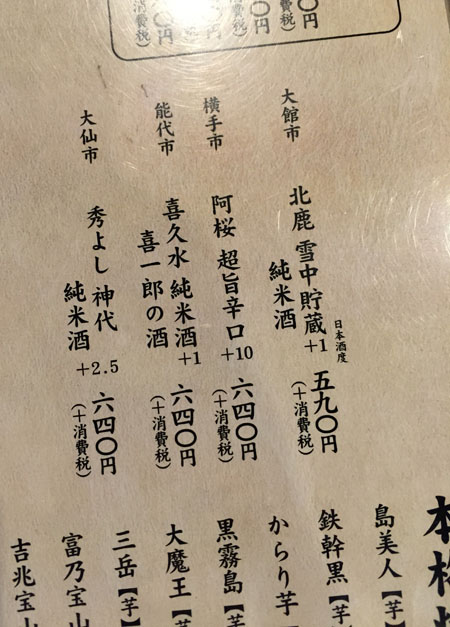 〇円
(消費税)
〇円
(消費税)
大館市
北鹿 雪中貯蔵
純米酒
日本酒度
+1
五九〇円
(+消費税)
横手市
阿桜 超旨辛口
+10
六四〇円
(+消費税)
能代市
喜久水 純米酒
喜一郎の酒
+1
六四〇円
(+消費税)
大仙市
秀よし 神代
純米酒
+2.5
六四〇円
(+消費税)
本格
島美人【芋】
鉄幹黒【芋】
からり芋
黒霧島【芋】
大魔王【芋】
三岳【芋】
富乃宝山
吉兆宝山